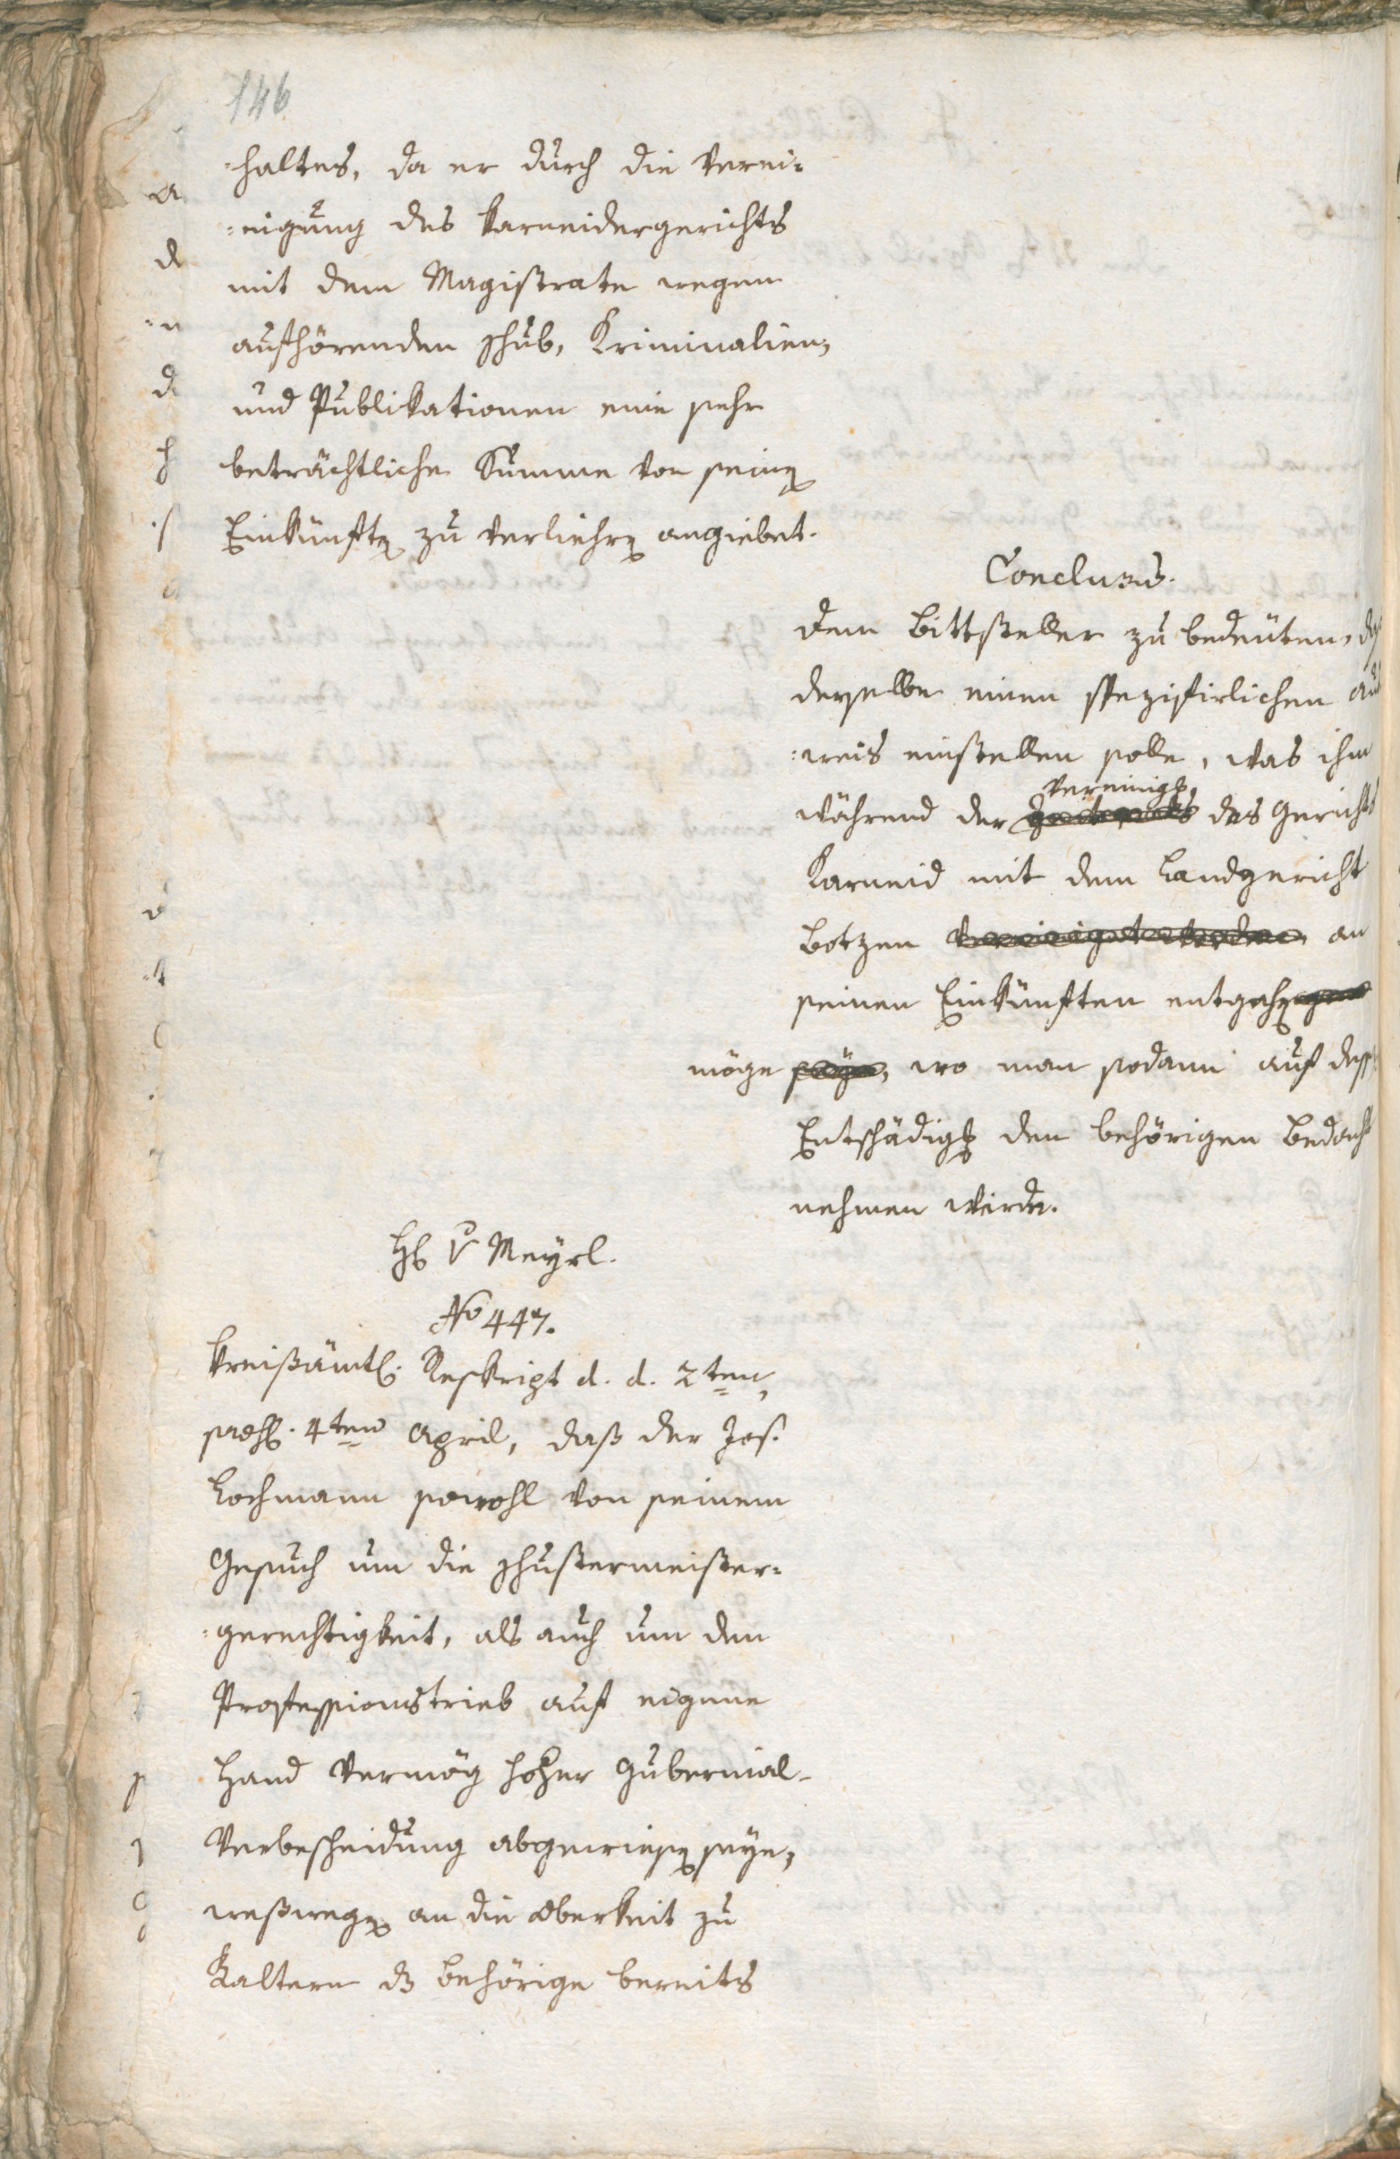 146
-haltes, da er durch die Verei-
-nigung des Karneidergerichts
mit dem Magistrate wegen
aufhörenden Schub, Kriminalien,
und Publikationen eine sehr
beträchtliche Summe von seinen
Einkünften zu verliehren angiebet.
Conclusum.
Dem Bittsteller zu bedeuten, daß
derselbe einen spezifirlichen Aus
-weis einstellen solle, was ihm
Vereinigung
während der des Gerichts
Karneid mit dem Landgericht
Botzen vereiniget worden an
seinen Einkünften entgehen
möge seye, wo man sodann auf dessen
Entschädigung den behörigen Bedacht
nehmen werde.
H v Meyrl.
No 447.
Kreißämtl. Reskript d. d. 2ten,
4ten April, daß der Jos.
Lochmann sowohl von seinem
Gesuch um die Schustermeister-
-gerechtigkeit, als auch um den
Professionstrieb auf eigene
Hand vermög hoher Gubernial-
Verbescheidung abgewiesen seye,
weßwegen an die Oberkeit zu
Kaltern das behörige bereits